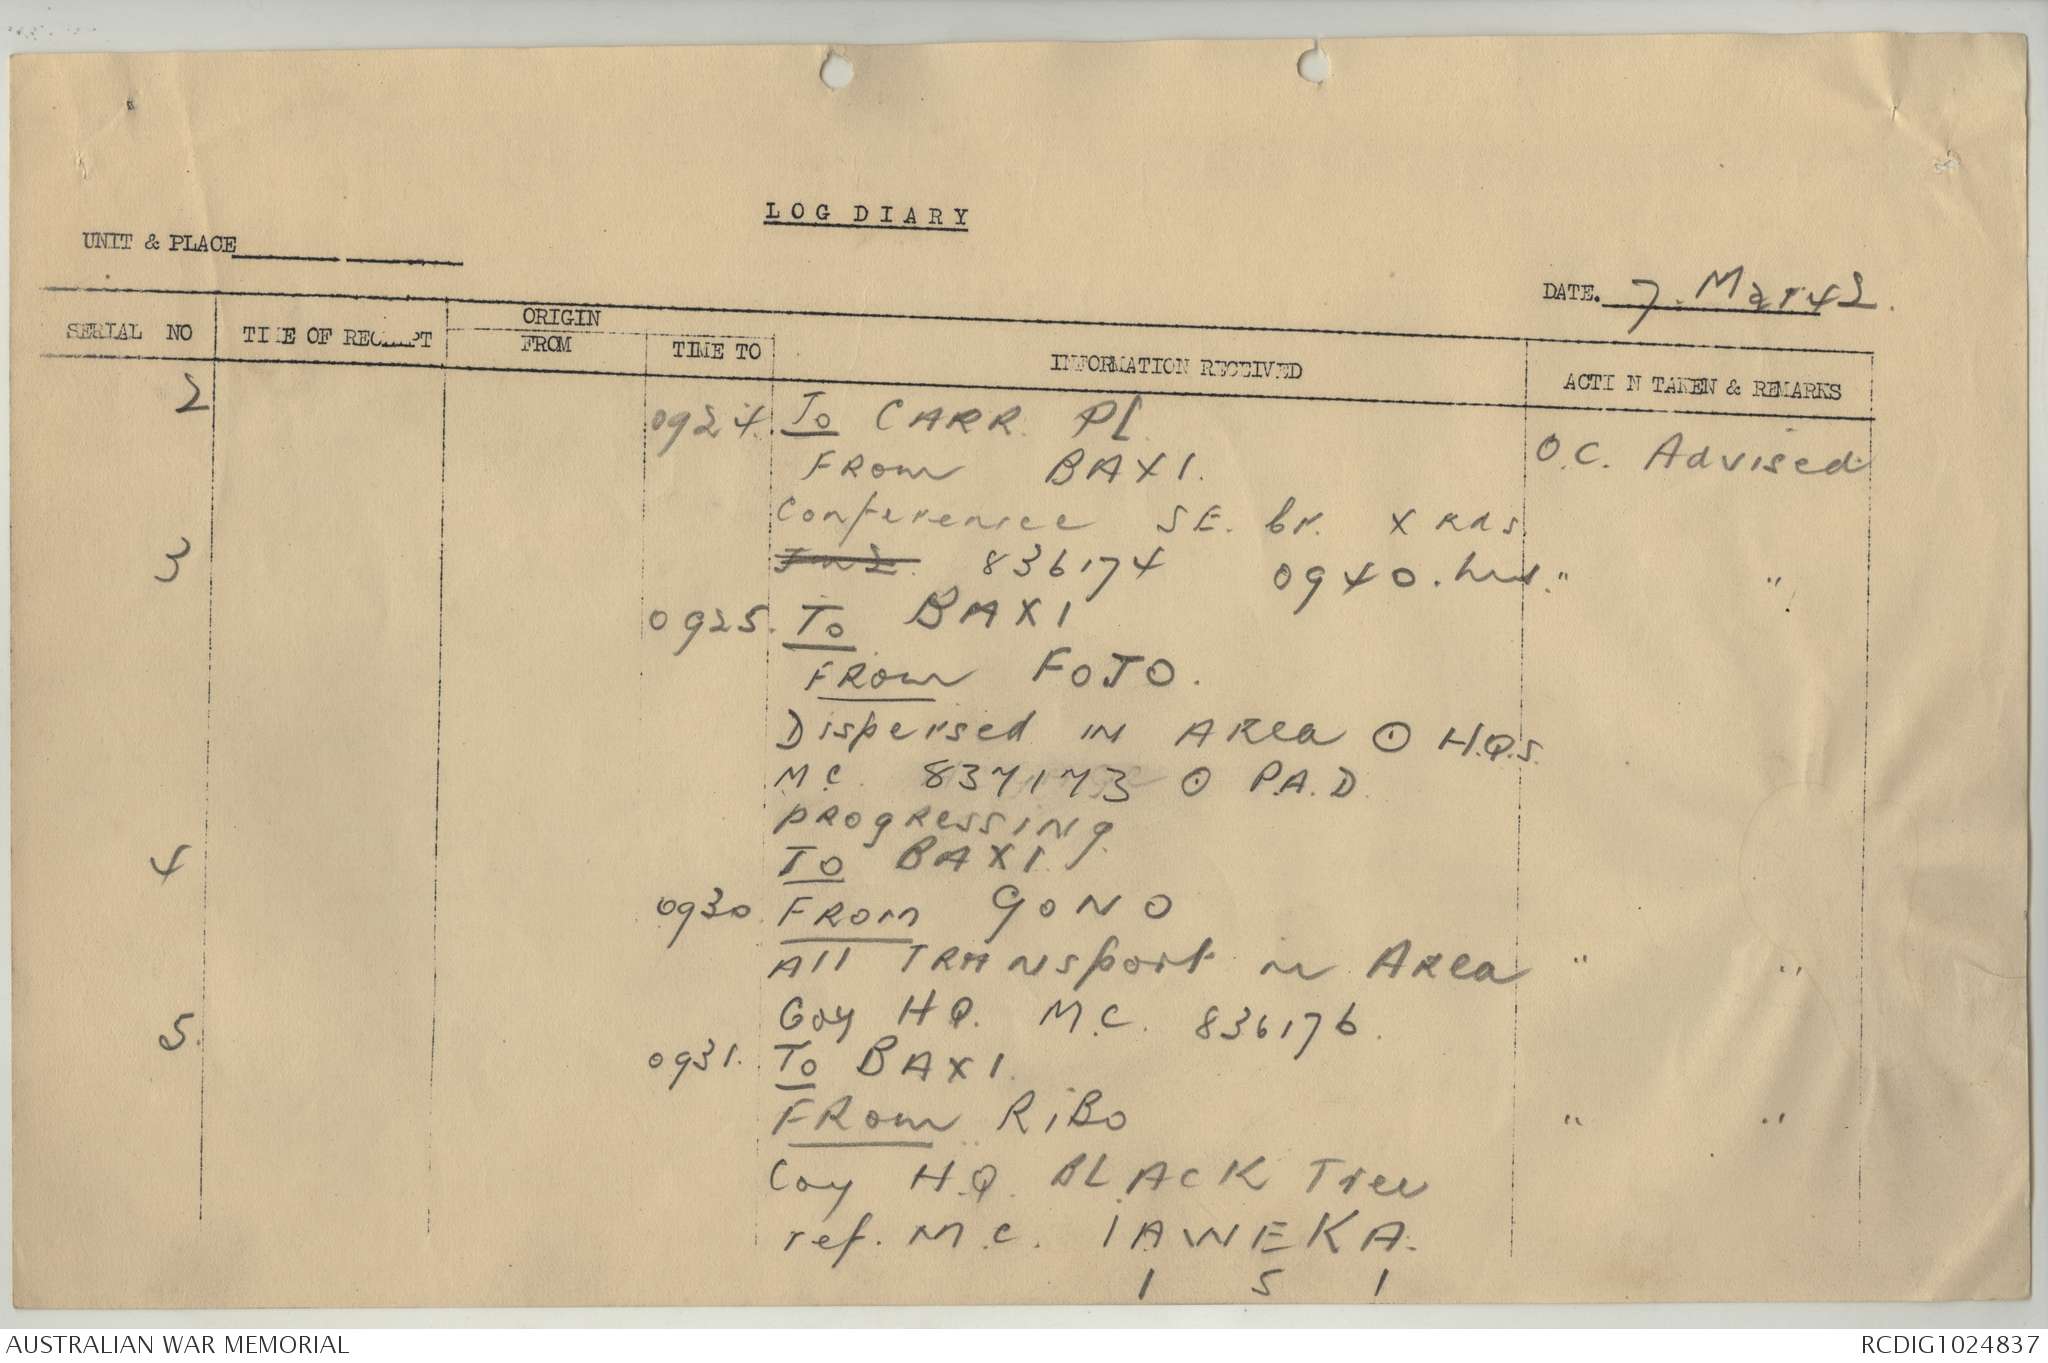 LOG DIARY
UNIT & PLACE
DATE. 7. Mar 42.
SERIAL NO
TIME OF RECEIPT
ORIGIN
FROM
TIME TO
INFORMATION RECEIVED
ACTI N TAKEN & REMARKS
2
0924. To CARR PL.
O.C. Advised
From BAX1.
Conference SE. br. X Rds
3
836174 0940. hrs. " "
0925. To BAX1
From FOJO.
Dispersed in Area ⊙ H.Q.s.
M.C. 837173 ⊙ P.A.D.
progressing
4
To BAX1
0930. From GONO
All Transport in Area " "
Coy HQ. M.C. 836176.
5.
0931. To BAX1.
From RiBo " "
Coy H.Q. BLACK Tree
ref. M.C. IAWEKA.
1 5 1
AUSTRALIAN WAR MEMORIAL
RCDIG1024837